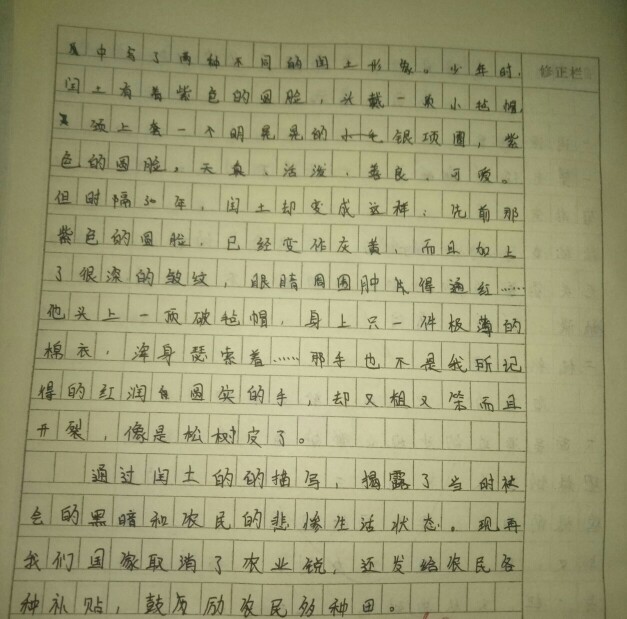 中写了两种不同的闰土形象。少年时,
修正栏
闰土有着紫色的圆脸,头戴一顶小毡帽,
颈上套一个明晃晃的小毛银项圈,紫
色的圆脸,天真、活泼、善良、可爱。
但时隔30年,闰土却变成这样:先前那
紫色的圆脸,已经变作灰黄,而且加上
了很深的皱纹,眼睛周围肿得通红……
他头上一顶破毡帽,身上只一件极薄的
棉衣,浑身瑟索着……那手也不是我所记
得的红润圆实的手,却又粗又笨而且
开裂,像是松树皮了。
通过闰土的的描写,揭露了当时社
会的黑暗和农民的悲惨生活状态。现再
我们国家取消了农业税,还发给农民各
种补贴,鼓励农民多种田。